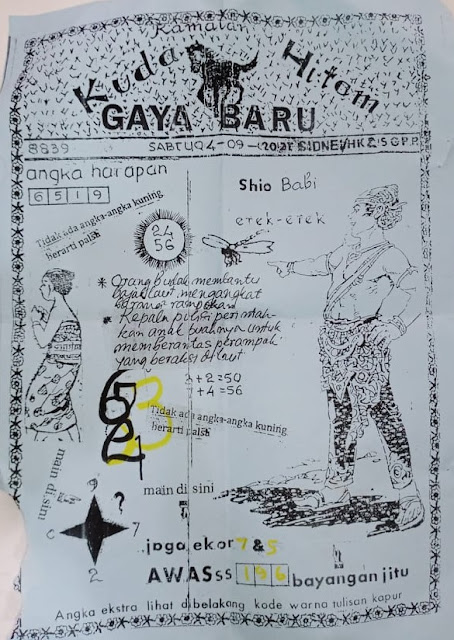 Ramalan
Kuda Hitam
GAYA BARU
8839 SABTU 04-09-2021 SIDNEI/HK & SGP.P.
angka harapan
6519
Shio Babi
erek-erek
Tidak ada angka-angka kuning
berarti palsu
24
56
* Orang butah membantu
bajak laut mengangkat
barang rampokan
* Kepala polisi perintah-
kan anak buahnya untuk
memberantas perampok
yang beraksi di laut
+ 2 = 50
+ 4 = 56
6
5
3
2
1
Tidak ada angka-angka kuning
berarti palsu
main disini
9
?
C
7
2
main di sini
jaga ekor 7 & 5
AWASss 196 bayangan jitu
Angka ekstra lihat dibelakang kode warna tulisan kapur